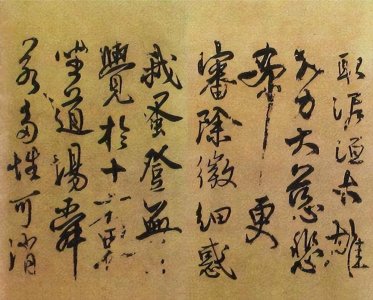 取泥洹大雄
大力大慈悲
希更
審除微細惑
我蚤登無
覺於十方界
坐道場舜
若多性可消